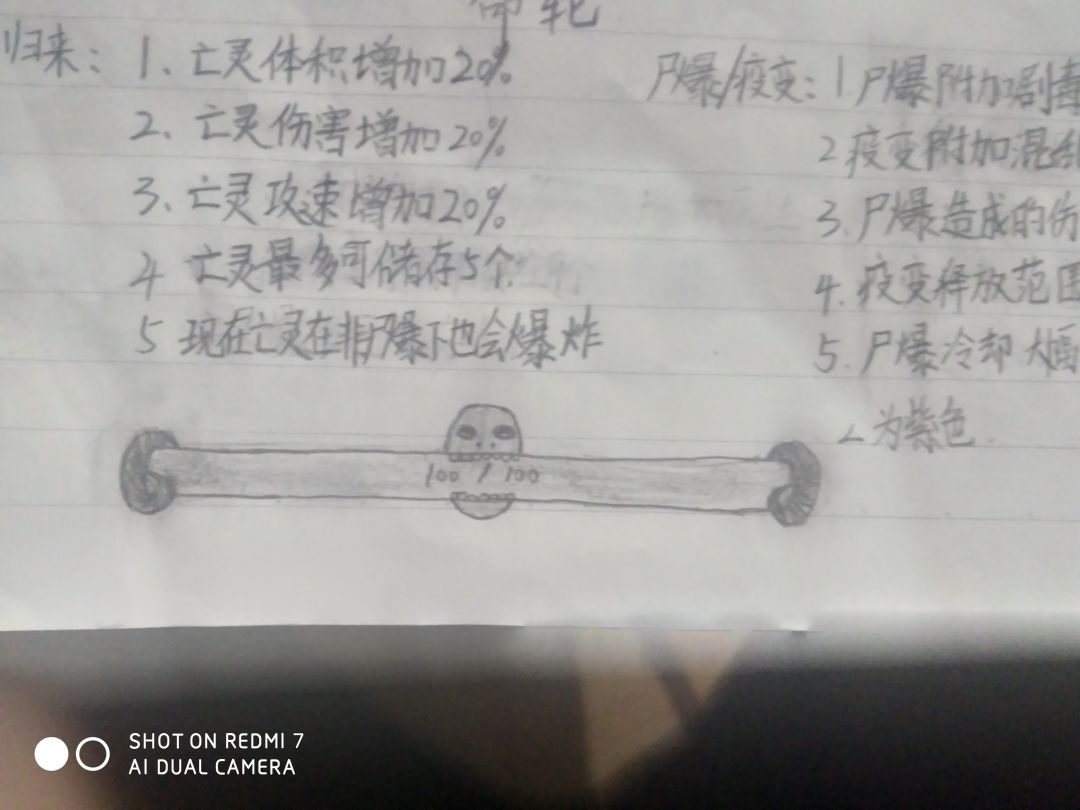 命轮
归来：1、亡灵体积增加20%
2、亡灵伤害增加20%
3、亡灵攻速增加20%
4 亡灵最多可储存5个
5 现在亡灵在非尸爆下也会爆炸
尸爆/疫变：1 尸爆附加剧毒
2 疫变附加混乱
3. 尸爆造成的伤
4. 疫变释放范围
5. 尸爆冷却大幅
为紫色
100 / 100
SHOT ON REDMI 7
AI DUAL CAMERA